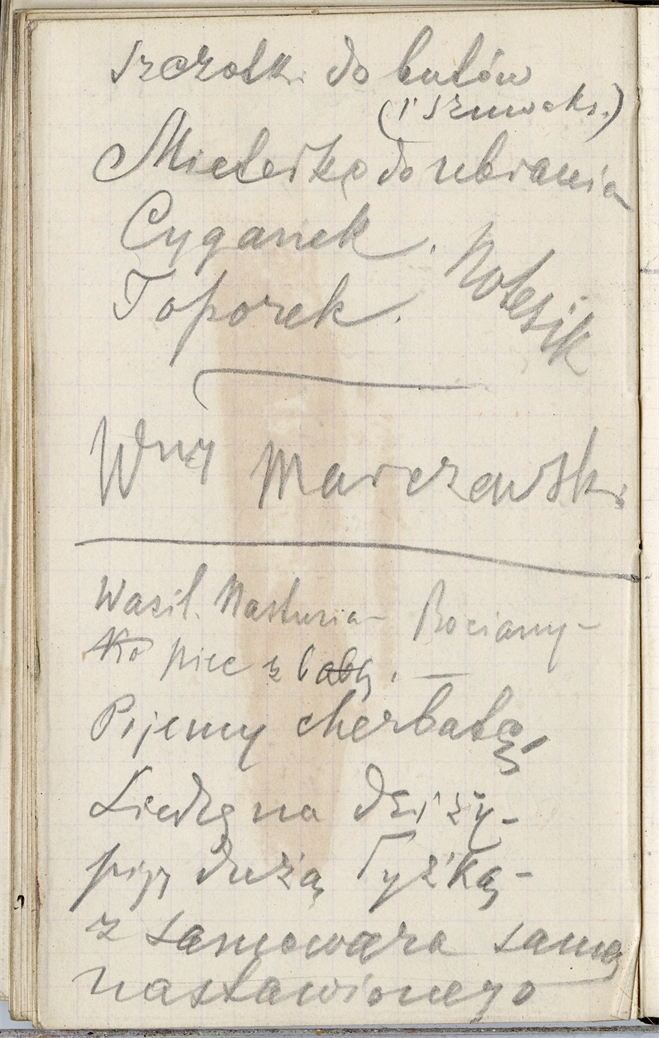 szczotki do butów
(i szuwaks.)
Mietełkę do ubrania
Cyganek.
Notesik
Toporek.
Wny Marczewski
Wasil. Nasturia – Bociany –
piec z babą. –
Pijemy cherbatę,
Siedzę na dziży –
piję dużą łyżką –
z samowara samo
nastawionego